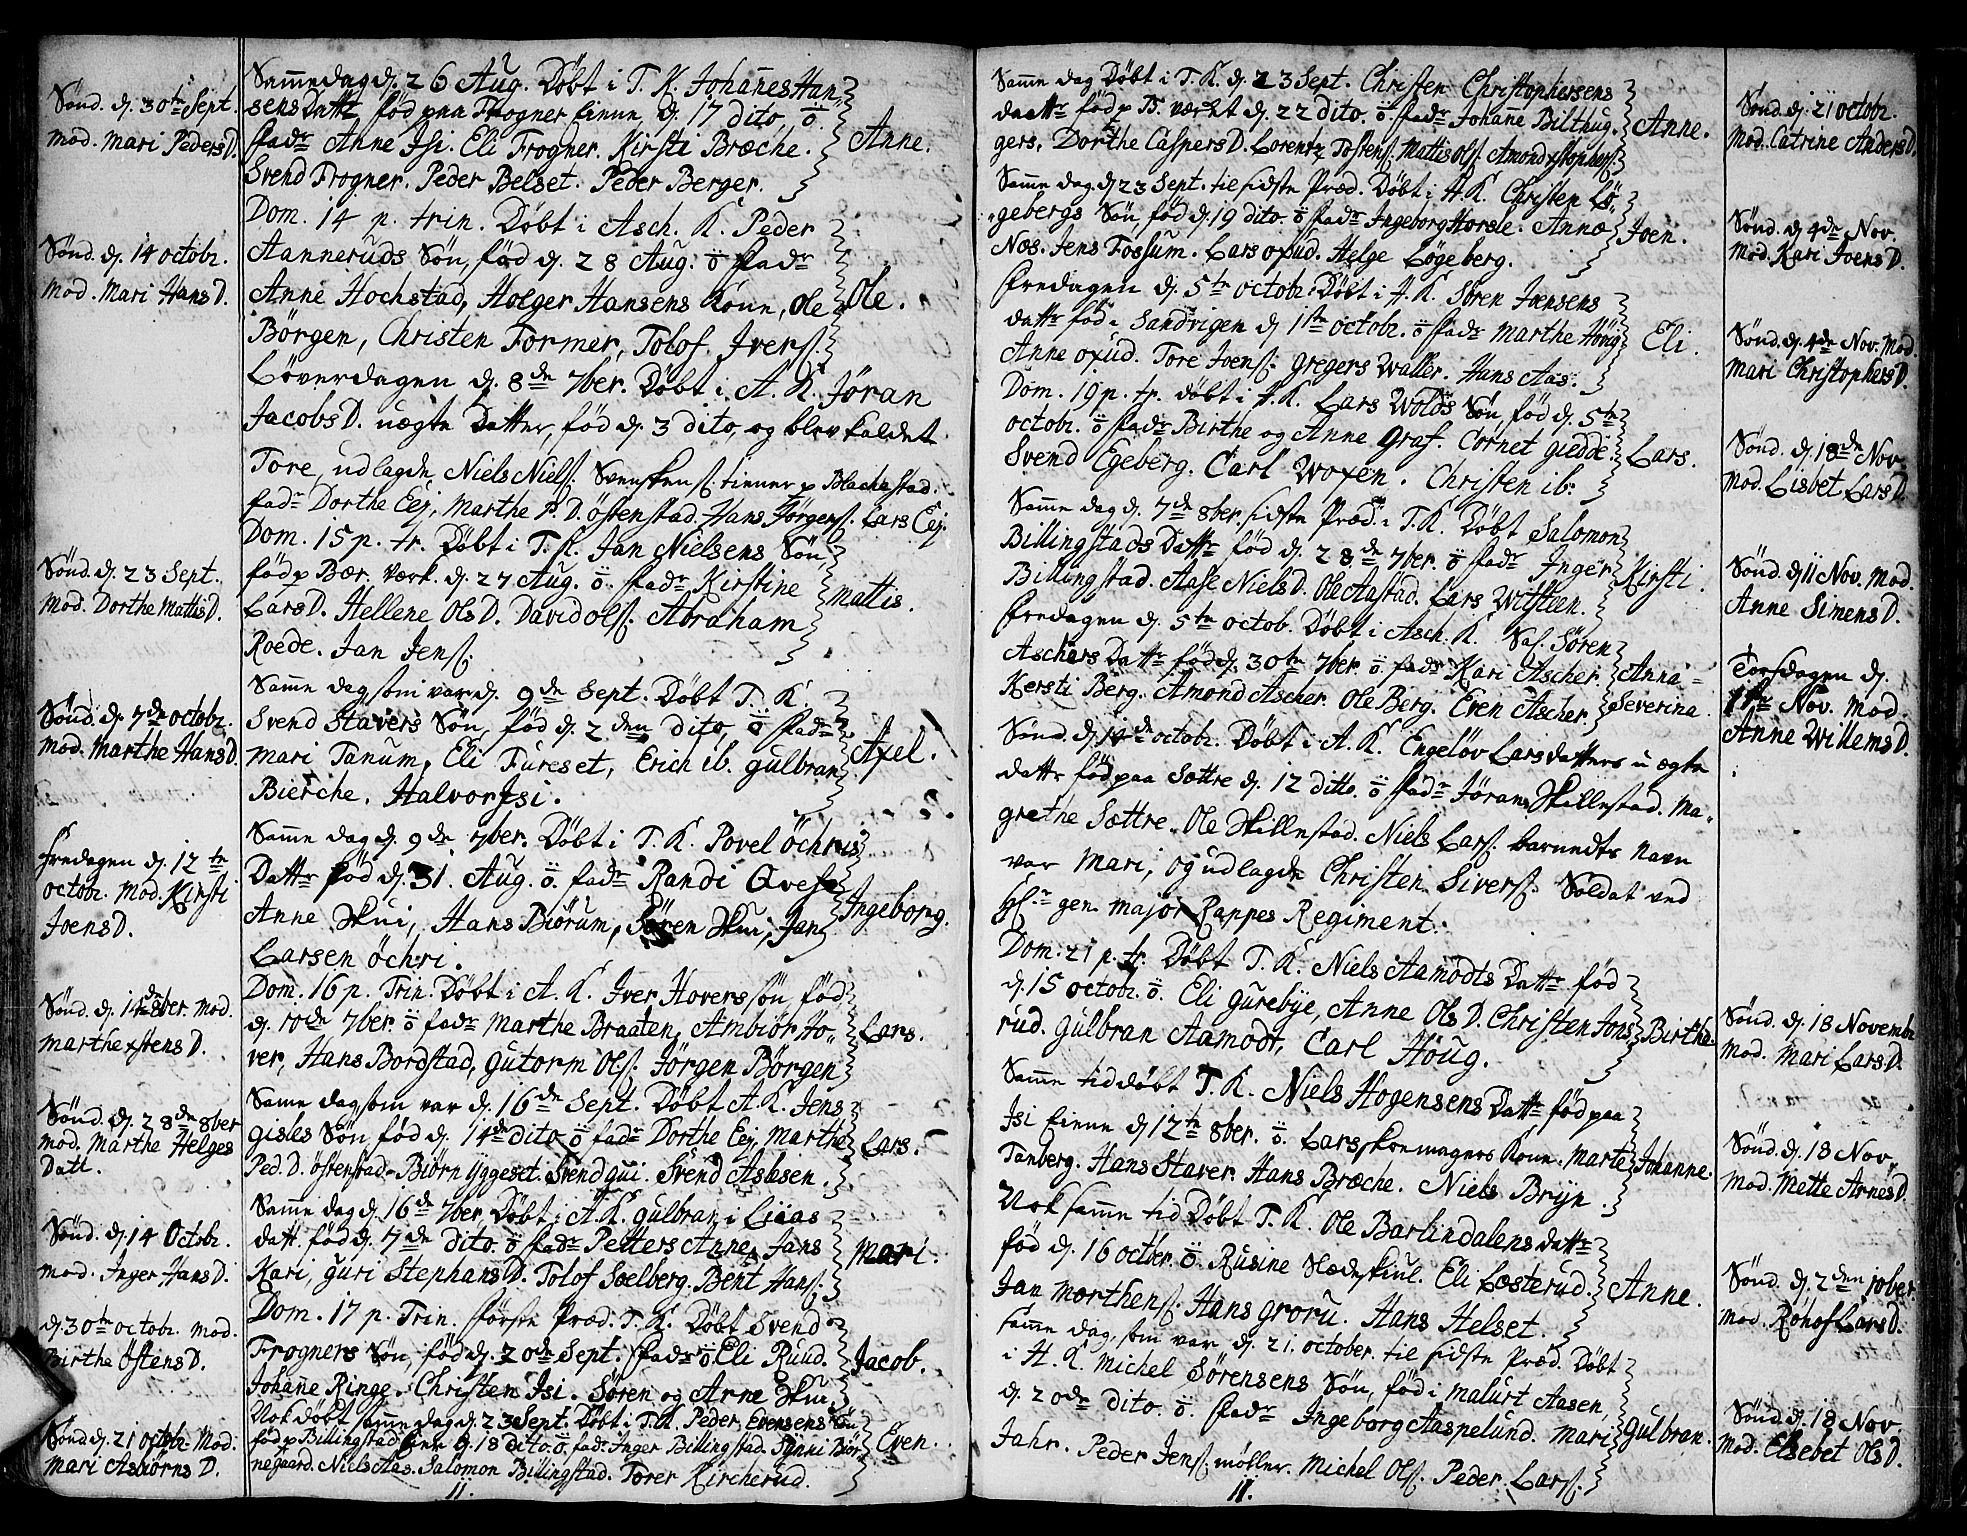 Sönd. d. 30te Sept.
mod. Mari PedersD.
Samme dag d. 26 Aug. Döbt i T. K. Johannes Han-
sens Dattr, fód paa Frogner Einne d. 17 dito ö
fadr Anne Isi. Eli Frogner. Kirsti Bræche.
Svend Frogner. Peder Belset. Peder Berger.
Anne.
Sönd. d. 14 octobr.
mod. Mari Hans D.
Dom. 14 p. trin. Döbt i Asch. K. Peder
Aanneruds Sön, föd d. 28 Aug. ö fadr
Anne Hochstad, Holger Hansens Kone, Ole
Börgen, Christen Former, Tolof Iverss.
Ole.
Löverdagen d. 8de 7ber. Döbt i A. K. Jöran
Jacobs D. uægte Datter, föd d. 3 dito, og blev kaldet
Tore, udlagde Niels Nielss. Svenskens. tiener p Blachestad.
fadr Dorthe Eej, Marthe P. D. Östenstad. Hans Jörgenss. Lars Eej.
Sönd. d. 23 Sept.
Mod. Dorthe Mattis D.
Dom. 15 p. tr. Döbt i T. K. Jan Nielsens Sön,
föd p Bær. Værk. d. 27 Aug. ö. fadr Kirstine
Lars D. Hellene Ols D. David Olss. Abraham
Roede. Jan Jenss.
Mattis.
Sönd. d. 7de octobr.
mod. Marthe Hans D.
Samme dag, som var d. 9de Sept. Döbt T. K.
Svend Stavers Sön, föd d. 2den dito, ö fadr
Mari Tanum, Eli Fureset, Erich ib. Gulbran
Bierche. Halvor Isi.
Axel.
Fredagen d. 12te
octobr. Mod. Kirsti
Joens D.
Samme dag d. 9de 7ber. Döbt i T. K. Povel Öchris
Dattr föd d. 31. Aug. ö. fadr Randi Qvese
Anne Skui, Hans Biörum, Sören Skui, Jan
Larsen Öchri.
Ingeborg.
Sönd. d. 14de 8ber. Mod.
Marthe xstens D.
Dom. 16 p. Trin. Döbt i A. K. Iver Hovers sön, föd
d. 10de 7ber. ö fadr Marthe Braaten, Ambiör Ho-
ver, Hans Bordstad, Gutorm Olss. Jörgen Börgen
Lars.
Sönd. d. 28de 8ber
Mod. Marthe Helges
Datt.
Samme dag, som var d. 16de Sept. Döbt A. K. Jens
Gisles Sön, föd d. 14de dito ö fadr Dorthe Eej, Marthe
Ped. D. Östenstad. Biörn Yggeset. Svend Gui. Svend Asbsen.
Lars.
Sönd. d. 14 Octobr.
Mod. Inger Hans D.
Samme dag d. 16de 7ber Döbt i A. K. Gulbran i Liias
datt. föd d. 7de dito. ö fadr Petters Anne, Jans
Kari, Guri Stephans D. Tolof Soelberg. Bent Hanss.
Mari.
d. 30te octobr. Mod.
Birthe Östens D.
Dom. 17 p. Trin. förste Præd. T. K. Döbt Svend
Frogners Sön, föd d. 20de Sept. fadr ö Eli Ruud.
Johanne Ringe. Christen Isi. Sören og Arne Skui
Jacob.
Sönd. d. 21 octobr. Mod.
Mari Asbiörns D.
Nok döbt samme dag d. 23 Sept. Döbt i T. K. Peder Evensens Sön
föd p Billingstad Einne d. 18 Dito. ö. fadr Inger Billingstad. Synni Biör-
negaard. Niels Aas. Salomon Billingstad. Torer Kircherud.
Even.
11.
Samme dag Döbt i T. K. d. 23 Sept. Christen Christophersens
dattr föd p B. værket d. 22 dito. ö. fadr Johanne Bilthug-
gers, Dorthe Caspers D. Lorentz Tostenss. Mattis Olss. Amond xstopherss.
Anne.
Sönd. d. 21 octobr.
Mod. Catrine Anders D.
Samme dag d. 23 Sept. til sidste Præd. Döbt i H. K. Christen Lö-
gebergs Sön, föd d. 19 dito. ö fadr Ingeborg Horsle. Anne
Næs. Jens Fossum. Lars Oxud. Helge Lögeberg.
Joen.
Sönd. d. 4de Nov.
Mod. Kari Joens D.
Fredagen d. 5te octobr. Döbt i H. K. Sören Joensens
dattr föd i Sandvigen d. 1ste octobr. ö fadr Marthe Höug
Anne Oxud. Tore Joenss. Gregers Waller. Hans Aas.
Eli.
Sönd. d. 4de Nov. Mod.
Mari Christophers D.
Dom. 19 p. tr. döbt i H. K. Lars Wolds Sön, föd d. 5te
octobr. ö fadr Birthe og Anne Graf. Cornet Giedde.
Svend Egeberg. Carl Woxen. Christen ib:
Lars.
Sönd. d. 18de Nov.
Mod. Lisbet Lars D.
Samme dag d. 7de 8ber. sidste Præd. i T. K. Döbt Salomon
Billingstads Dattr föd d. 28de 7ber. ö fadr Inger
Billingstad. Aase Niels D. Ole Aastad. Lars Witsteen.
Kirsti.
Sönd. d. 11 Nov. Mod.
Anne Simens D.
Fredagen d. 5te octob. Döbt i Asch. K. Sal. Sören
Aschers Dattr föd d. 30te 7ber. ö fadr Kari Ascher.
Kersti Berg. Amond Ascher. Ole Berg. Even Ascher.
Anna-
Severina.
Torsdagen d.
1ste Nov. Mod.
Anne Willems D.
Sönd. d. 14de octobr. Döbt i A. K. Engelöv Larsdatters uægte
dattr föd paa Sættre d. 12 ditto. ö fadr Jöran Skillestad. Ma-
grethe Sættre. Ole Skillestad. Niels Larss. barnedts Navn
var Mari, og udlagde Christen Siverss. Soldat ved
Hr. gen. major Rappes Regiment.
Dom. 21 p. tr. Döbt T. K. Niels Aamodts Dattr föd
d. 15 octobr. ö. Eli Gurebye, Anne Ols D. Christen Jons-
rud. Gulbran Aamodt, Carl Höug.
Birthe.
Sönd. d. 18 Novembr
Mod. Mari Lars D.
Samme tid döbt T. K. Niels Hogensens Dattr föd paa
Isi Einne d. 12te 8ber. ö. Lars skoemagers Kone. Marte
Tanberg. Hans Staver. Hans Bræche. Niels Bryn.
Johanne.
Sönd. d. 18 Nov.
Mod. Mette Arnes D.
Nok samme tid Döbt T. K. Ole Barlindalens dattr
föd d. 16 octbr. ö. Rusine Slædeskiul. Eli Læsterud.
Jan Morthenss. Hans Groru. Hans Helset.
Anne.
Sönd. d. 2den 10ber.
Mod. Rönof Lars D.
Samme dag, som var d. 21. october. til sidste Præd. Döbt
i H. K. Michel Sörensens Sön, föd i Malurt Aasen,
d. 20de dito. ö. fadr Ingeborg Aaspelund. Mari
Jahr. Peder Jenss. möller. Michel Olss. Peder Larss.
Gulbran.
Sönd. d. 18 Nov.
Mod. Elsebet Ols D.
11.